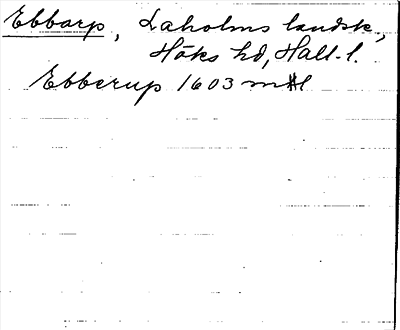 Ebbarp, Laholms landsk,
Höks hd, Hall. l.
Ebberup 1603